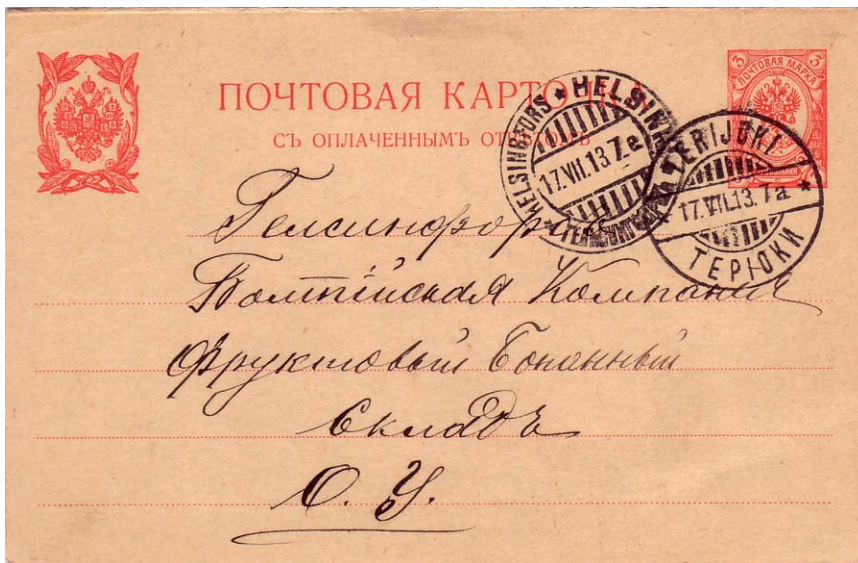 3 ПОЧТОВАЯ МАРКА 3
ПОЧТОВАЯ КАРТО
СЪ ОПЛАЧЕННЫМЪ ОТВѢТОМЪ
HELSINGFORS * HELSINKI
17.VII.13.7e
TERIJOKI
17.VII.13.7a *
ТЕРІОКИ
Гельсингфорсъ
Болтійская Компанія
Фруктовый Бонанный
Складъ
О. У.